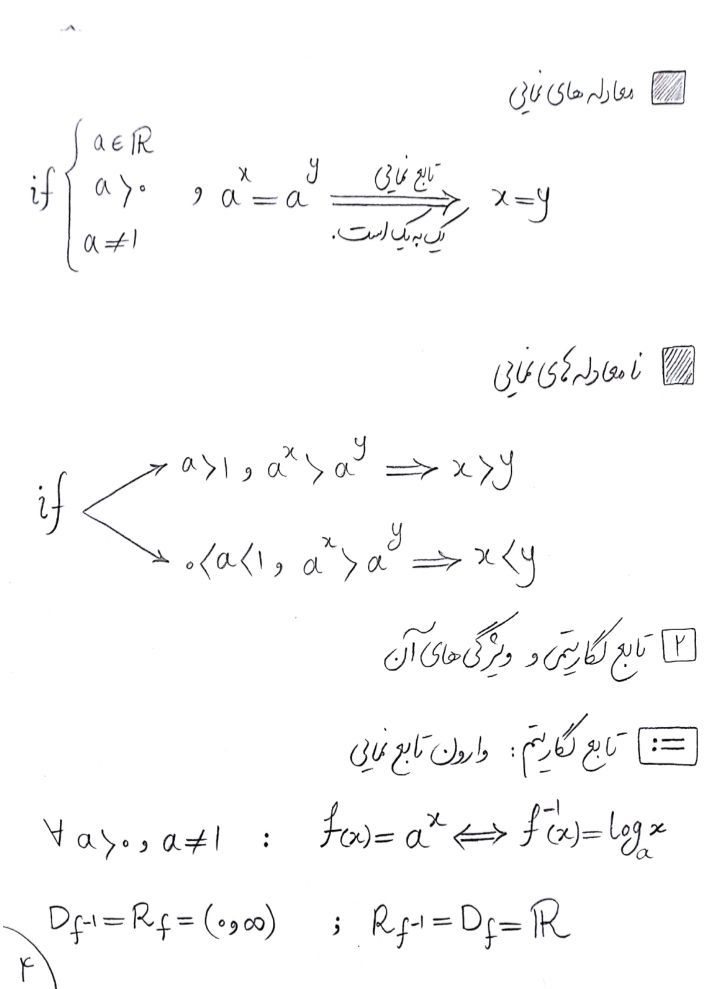 معادله های نمایی
if { a∈ℝ , a>۰ , a≠۱ و a^x = a^y ⟹ x=y
تابع نمایی
یک به یک است.
نامعادله های نمایی
if
a>۱ و a^x > a^y ⟹ x>y
۰<a<۱ و a^x > a^y ⟹ x<y
۲ تابع لگاریتمی و ویژگی های آن
:= تابع لگاریتم: وارون تابع نمایی
∀ a>۰ و a≠۱ : f(x)= a^x ⟺ f^-1(x)= log_a x
D_f^-1 = R_f = (۰و∞) ; R_f^-1 = D_f = ℝ
۴